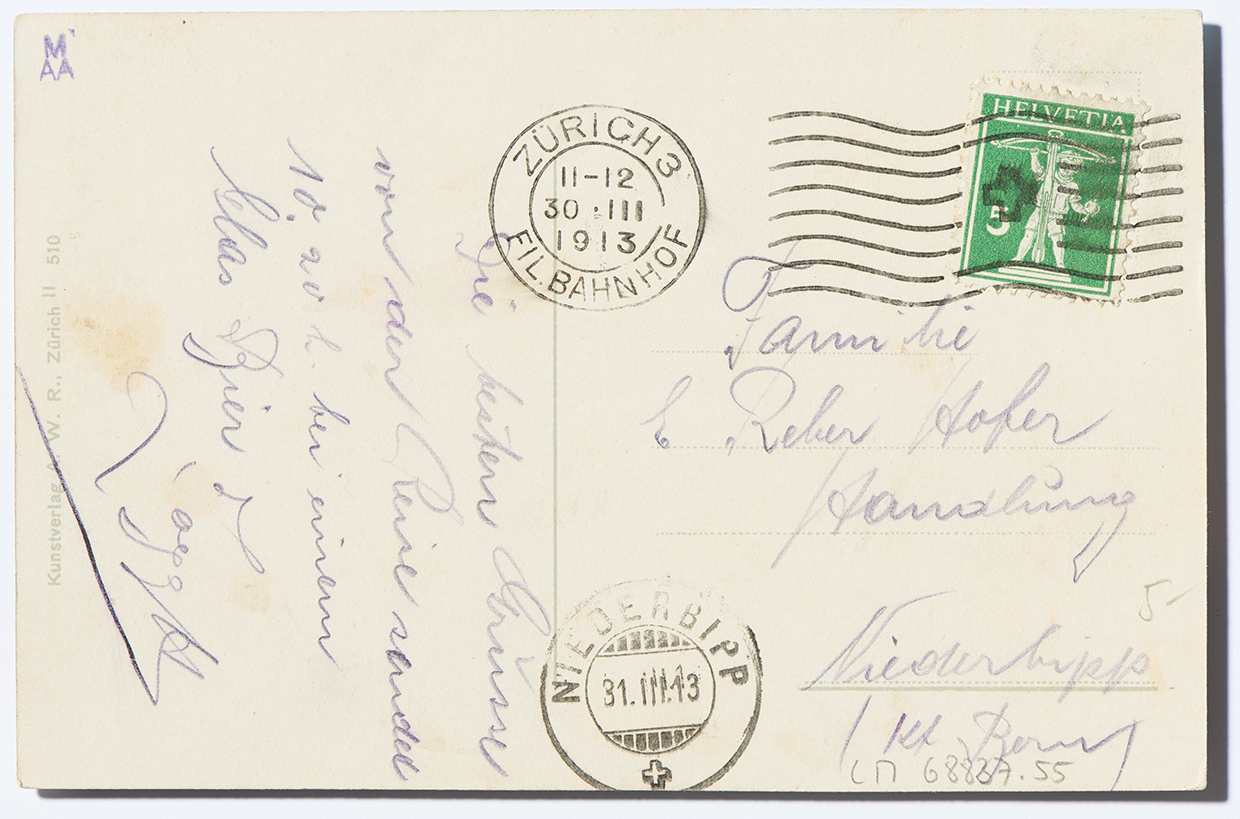 M
AA
Kunstverlag A. W. R., Zürich II 510
Die besten Grüsse
von der Reise sendet
10.20 h. bei einem
Glas Bier
ZÜRICH 3
11-12
30.III
1913
FIL. BAHNHOF
HELVETIA
5
Familie
E Reber Hofer
Handlung
Niederbipp
(Kt. Bern)
5
LM 68837.55
NIEDERBIPP
31.III.13